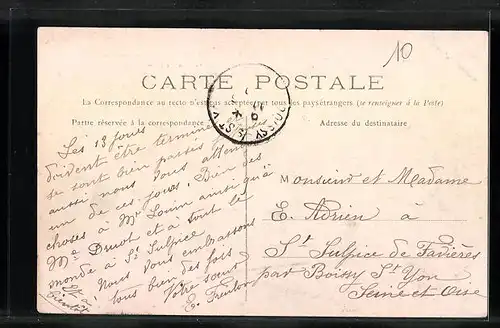 10
CARTE POSTALE
La Correspondance au recto n'est pas acceptée par tous les pays étrangers (se renseigner à la Poste)
Partie réservée à la correspondance
Adresse du destinataire
BOISSY S/ ST YON
Les 13 jours
doivent être terminés
se sont bien passés
aussi nous vous attendons
un de ces jours. Bien des
choses à Mr Louin ainsi qu'à
Me Duot et à tout le
monde à St Sulpice
Nous vous embrassons
tous bien des fois
Votre sœur
E.
et à
bientôt
Monsieur et Madame
E. Adrien à
St Sulpice de Favières
par Boissy St Yon
Seine et Oise